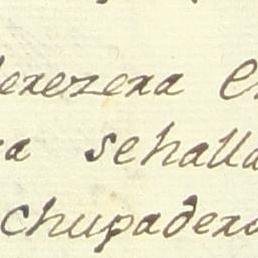 erezera en
a sehalla
chupadero